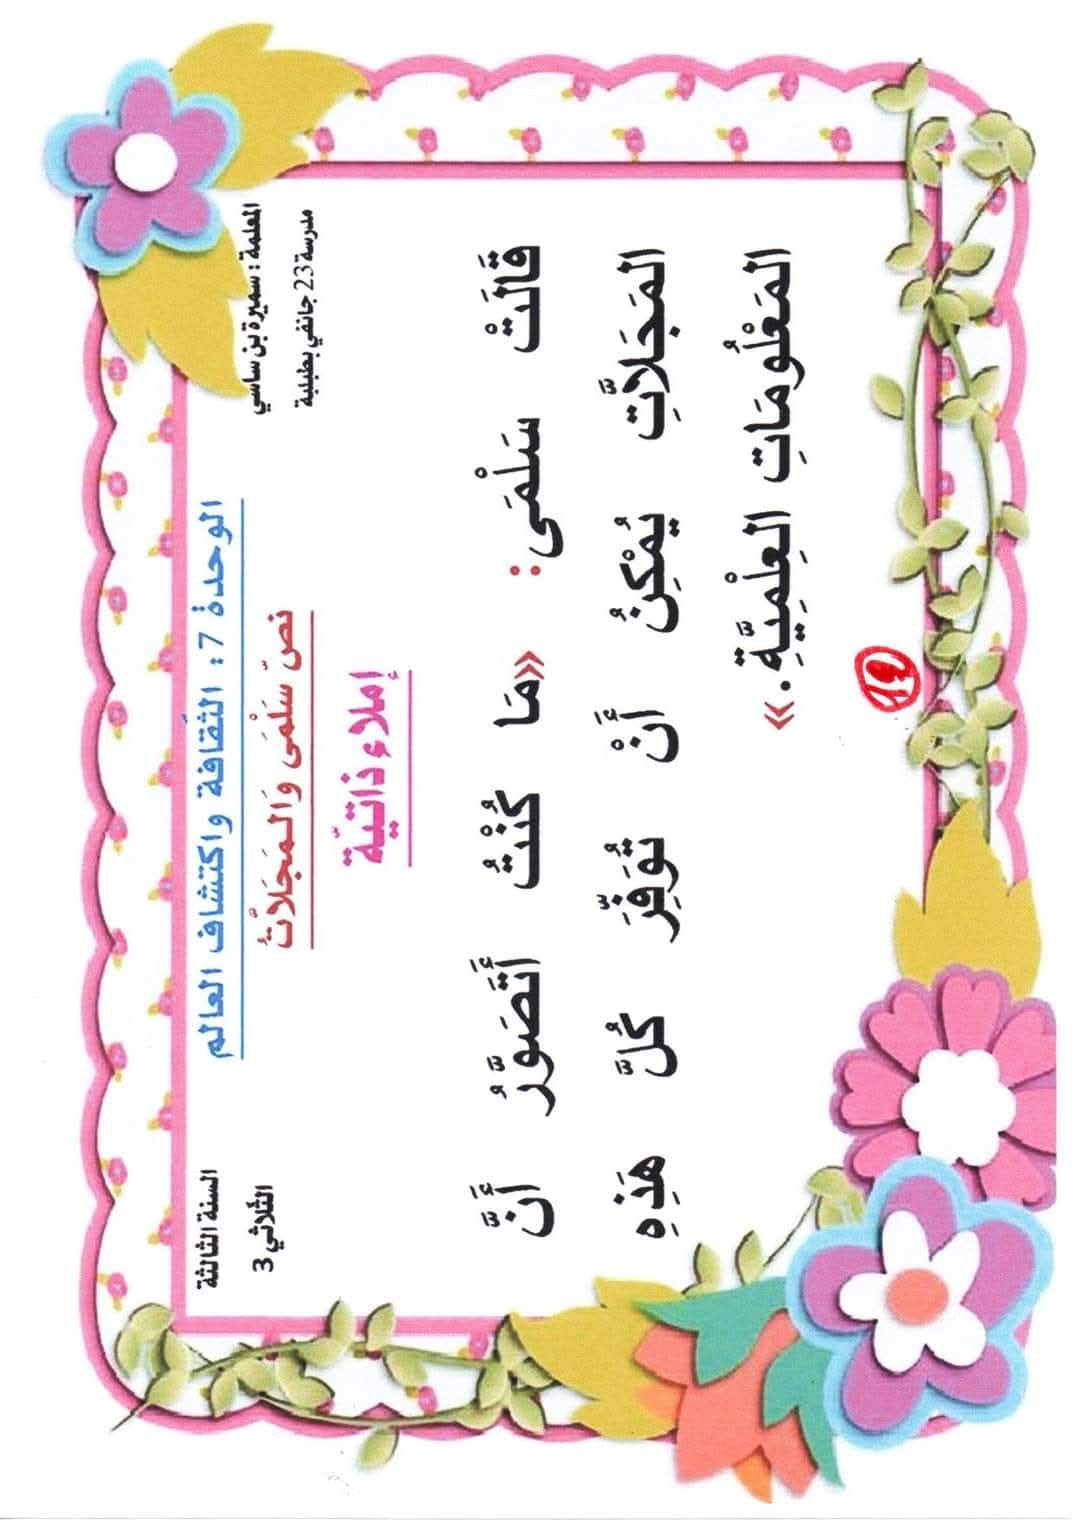 المعلمة : سميرة بن ساسي
مدرسة 23 جانفي بطبلبة
الوحدة 7: الثقافة واكتشاف العالم
السنة الثالثة
الثلاثي 3
نصّ سَلْمَى وَالـمَجَلاَّتُ
إملاء ذاتيّة
قَالَتْ سَلْمَى: «مَا كُنْتُ أَتَصَوَّرُ أَنَّ
المَجَلاَّتِ يُمْكِنُ أَنْ تُوَفِّرَ كُلَّ هَذِهِ
المَعْلُومَاتِ العِلْمِيَّةِ.»